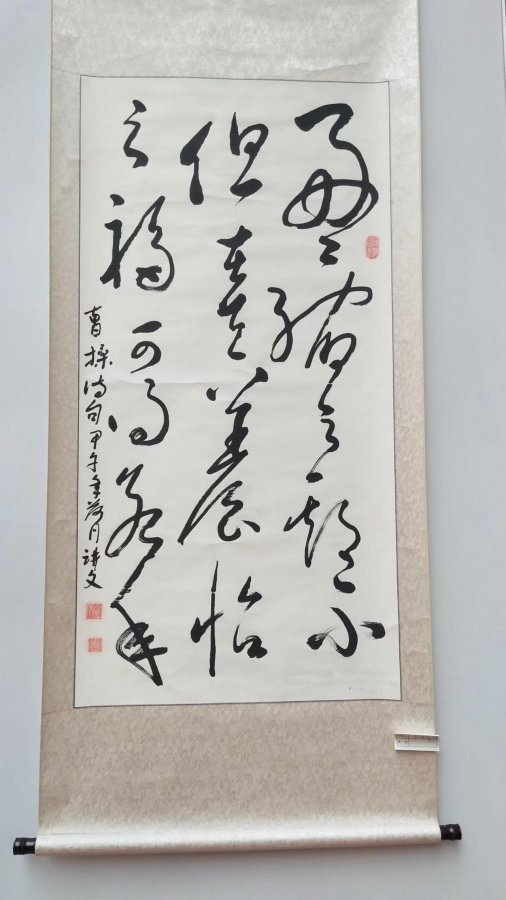 盈縮之期不
但在天養怡
之福可得永年
曹操诗句甲午年月文